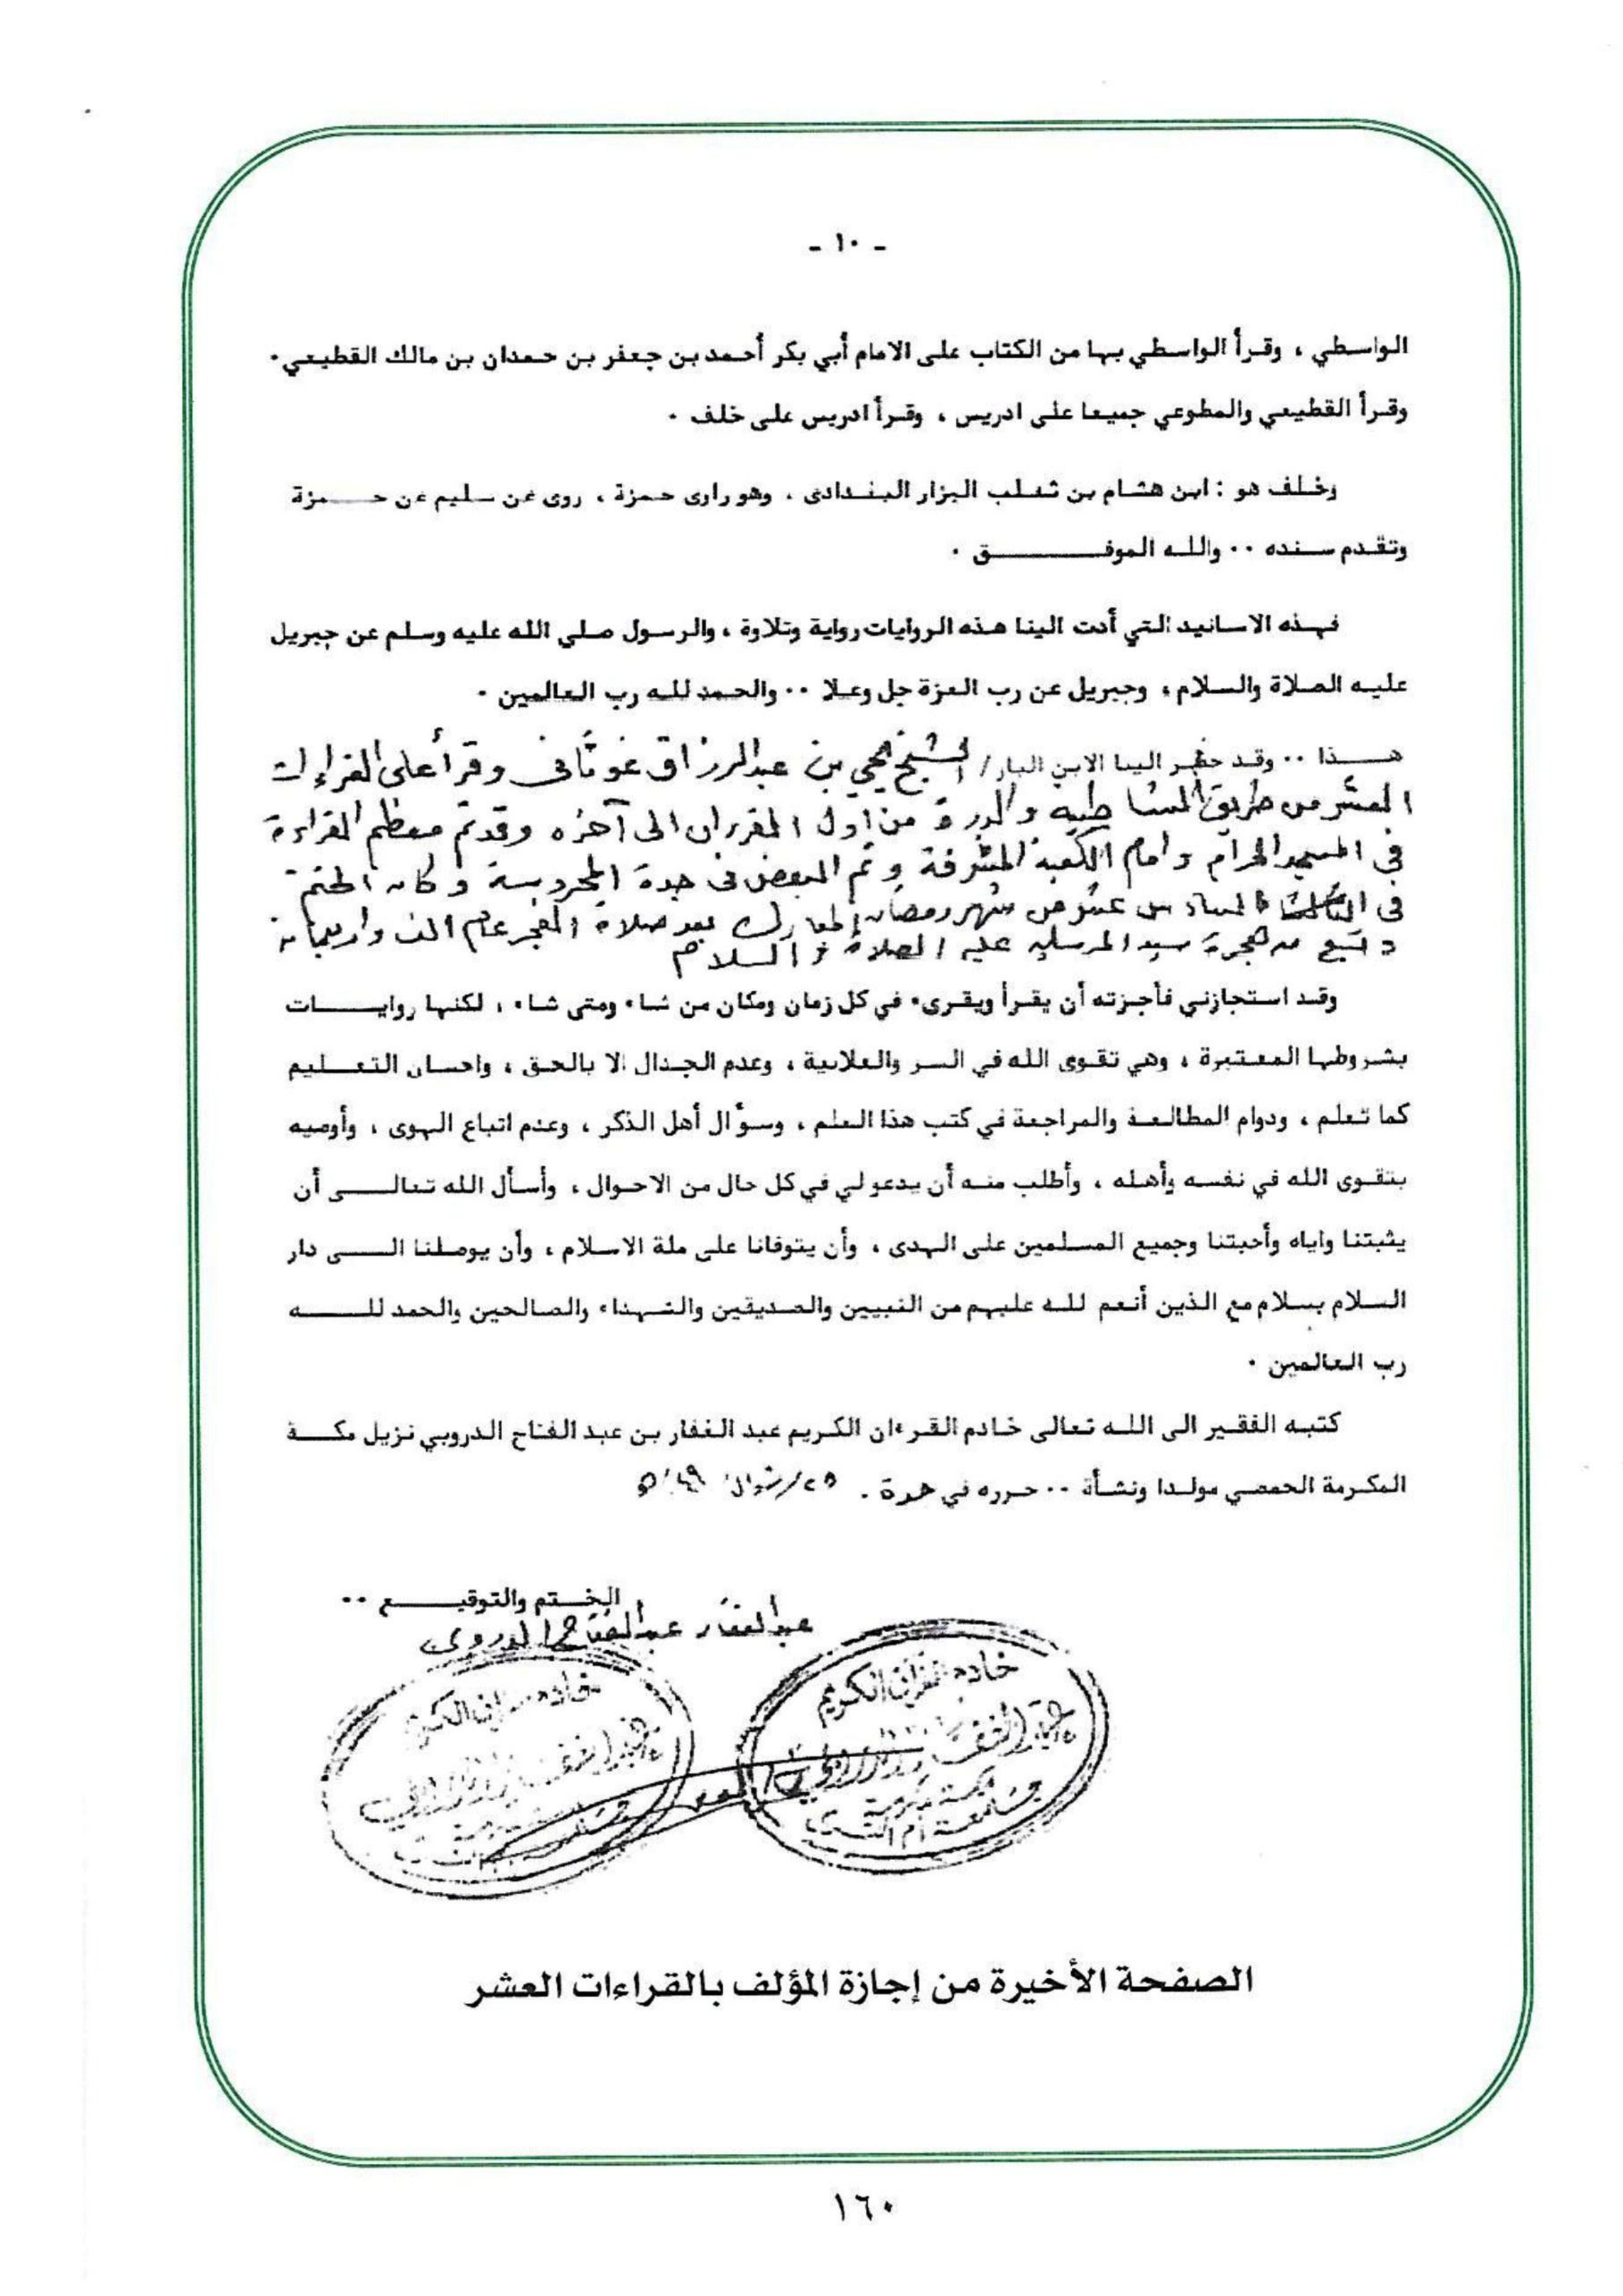 - ١٠ -
الواسطي ، وقرأ الواسطي بها من الكتاب على الامام أبي بكر أحمد بن جعفر بن حمدان بن مالك القطيعي .
وقرأ القطيعي والمطوعي جميعا على ادريس ، وقرأ ادريس على خلف .
وخلف هو : ابن هشام بن ثعلب البزار البغدادى ، وهو راوى حمزة ، روى عن سليم عن حمزة
وتقدم سنده .. والله الموفق .
فهذه الاسانيد التي أدت الينا هذه الروايات رواية وتلاوة ، والرسول صلي الله عليه وسلم عن جبريل
عليه الصلاة والسلام ، وجبريل عن رب العزة جل وعلا .. والحمد لله رب العالمين .
هذا .. وقد حضر الينا الابن البار / الشيخ يحيي بن عبدالرزاق غوثاني وقرأ على القراءات
العشر من طريق الشاطبيه والدرة من اول القرءان الى آخره وقد تم معظم القراءة
في المسجد الحرام وامام الكعبة المشرفة وتم البعض في جدة المحروسة وكان الختم
في السادس عشر من شهر رمضان المبارك بعد صلاة الفجر عام الف واربعمائة
وتسع من هجرة سيد المرسلين عليه الصلاة والسلام
وقد استجازني فأجزته أن يقرأ ويقرىء في كل زمان ومكان من شاء ومتى شاء ، لكنها روايات
بشروطها المعتبرة ، وهي تقوى الله في السر والعلانية ، وعدم الجدال الا بالحق ، واحسان التعليم
كما تعلم ، ودوام المطالعة والمراجعة في كتب هذا العلم ، وسؤال أهل الذكر ، وعدم اتباع الهوى ، وأوصيه
بتقوى الله في نفسه وأهله ، وأطلب منه أن يدعو لي في كل حال من الاحوال ، وأسأل الله تعالى أن
يثبتنا واياه وأحبتنا وجميع المسلمين على الهدى ، وأن يتوفانا على ملة الاسلام ، وأن يوصلنا الى دار
السلام بسلام مع الذين أنعم لله عليهم من النبيين والصديقين والشهداء والصالحين والحمد لله
رب العالمين .
كتبه الفقير الى الله تعالى خادم القرءان الكريم عبد الغفار بن عبد الفتاح الدروبي نزيل مكة
المكرمة الحمصي مولدا ونشأة .. حرره في جدة . ٢٥/شوال
الختم والتوقيع ..
عبدالغفار عبدالفتاح الدروبي
خادم القرآن الكريم
عبد الغفار الدروبي
مكة المكرمة
جامعة أم القرى
الصفحة الأخيرة من إجازة المؤلف بالقراءات العشر
١٦٠